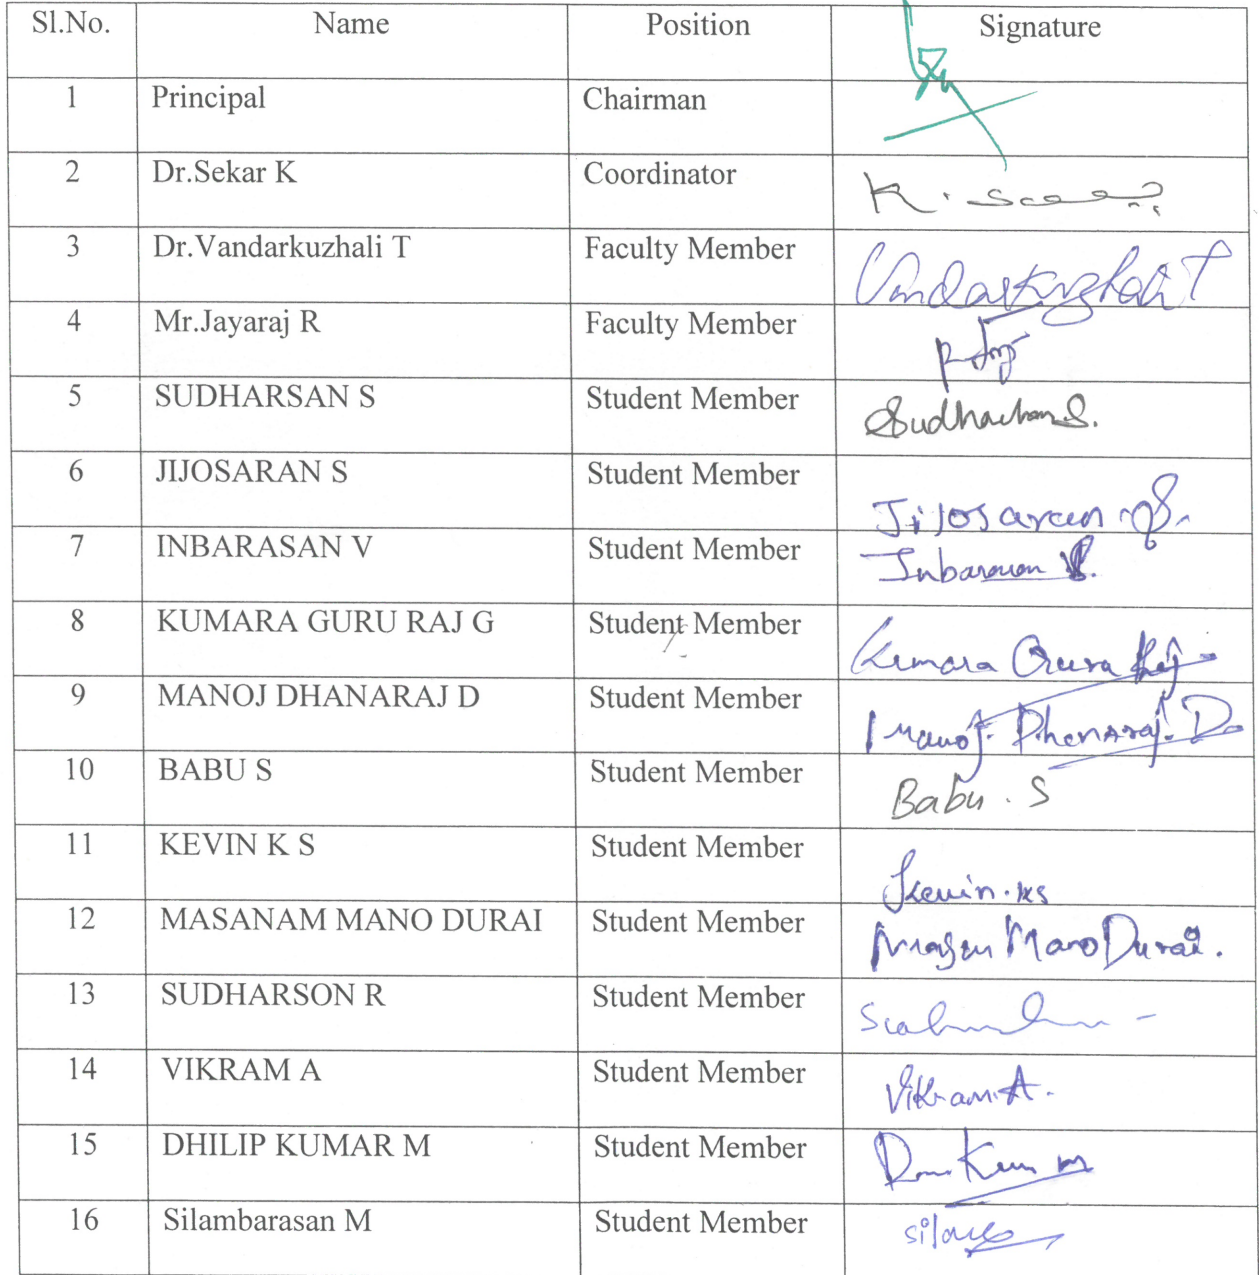 Sl.No. Name Position Signature
1 Principal Chairman
2 Dr.Sekar K Coordinator K.
3 Dr.Vandarkuzhali T Faculty Member Vandarkuzhali T
4 Mr.Jayaraj R Faculty Member
5 SUDHARSAN S Student Member Sudharshan S.
6 JIJOSARAN S Student Member Jijosaran S.
7 INBARASAN V Student Member Inbarasan V.
8 KUMARA GURU RAJ G Student Member Kumara Guru Raj
9 MANOJ DHANARAJ D Student Member Manoj. Dhanaraj. D
10 BABU S Student Member Babu . S
11 KEVIN K S Student Member Kevin.ks
12 MASANAM MANO DURAI Student Member Mano Durai.
13 SUDHARSON R Student Member
14 VIKRAM A Student Member Vikram.A.
15 DHILIP KUMAR M Student Member
16 Silambarasan M Student Member